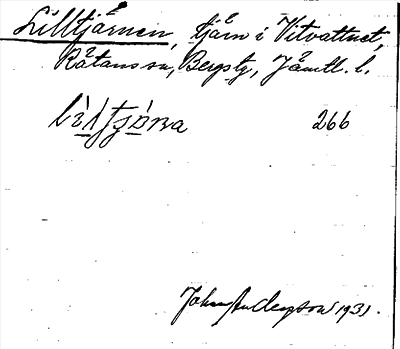 Lilltjärnen, tjärn i Vitvattnet,
Rätans sn, Bergs tg, Jämtl. l.
266
John Andersson 1931.